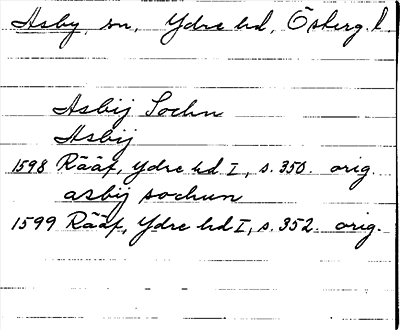 Asby, sn, Ydre hd, Österg. l.
Asbij Sochn
Asbij
1598 Rääf, Ydre hd I, s. 350. orig.
asbij sochun
1599 Rääf, Ydre hd I, s. 352. orig.